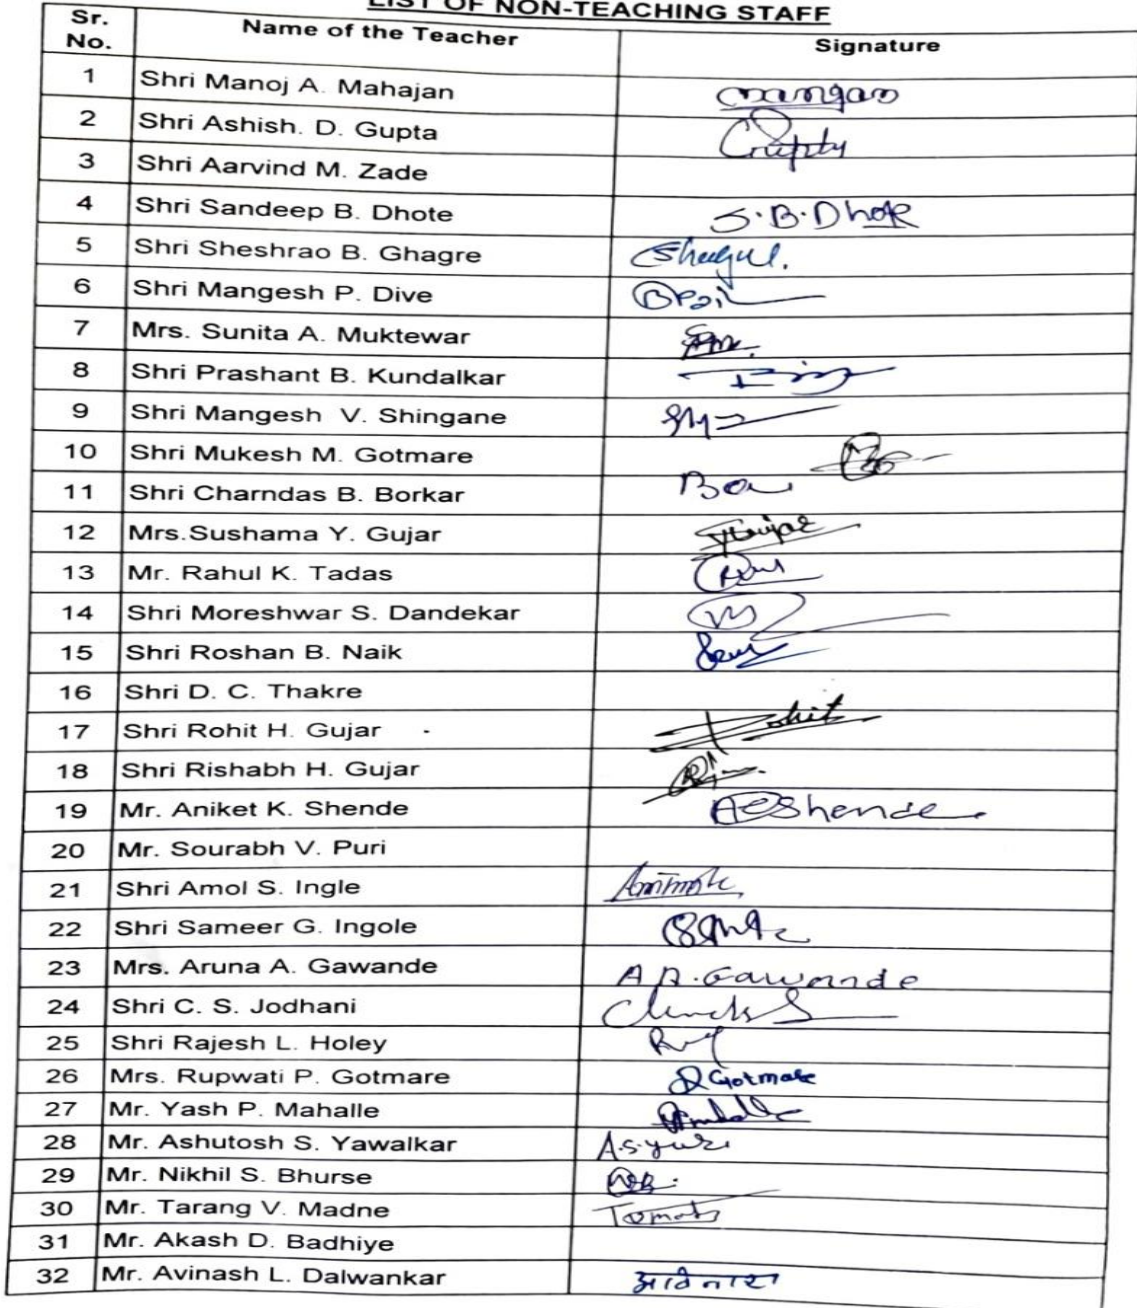 LIST OF NON-TEACHING STAFF
Sr. No. Name of the Teacher Signature
1 Shri Manoj A. Mahajan
2 Shri Ashish. D. Gupta
3 Shri Aarvind M. Zade
4 Shri Sandeep B. Dhote S.B.Dhote
5 Shri Sheshrao B. Ghagre
6 Shri Mangesh P. Dive
7 Mrs. Sunita A. Muktewar
8 Shri Prashant B. Kundalkar
9 Shri Mangesh V. Shingane
10 Shri Mukesh M. Gotmare
11 Shri Charndas B. Borkar
12 Mrs.Sushama Y. Gujar
13 Mr. Rahul K. Tadas
14 Shri Moreshwar S. Dandekar
15 Shri Roshan B. Naik
16 Shri D. C. Thakre
17 Shri Rohit H. Gujar Rohit
18 Shri Rishabh H. Gujar
19 Mr. Aniket K. Shende Shende
20 Mr. Sourabh V. Puri
21 Shri Amol S. Ingle
22 Shri Sameer G. Ingole
23 Mrs. Aruna A. Gawande A A.Gawande
24 Shri C. S. Jodhani
25 Shri Rajesh L. Holey
26 Mrs. Rupwati P. Gotmare Gotmare
27 Mr. Yash P. Mahalle
28 Mr. Ashutosh S. Yawalkar
29 Mr. Nikhil S. Bhurse
30 Mr. Tarang V. Madne
31 Mr. Akash D. Badhiye
32 Mr. Avinash L. Dalwankar अविनाश